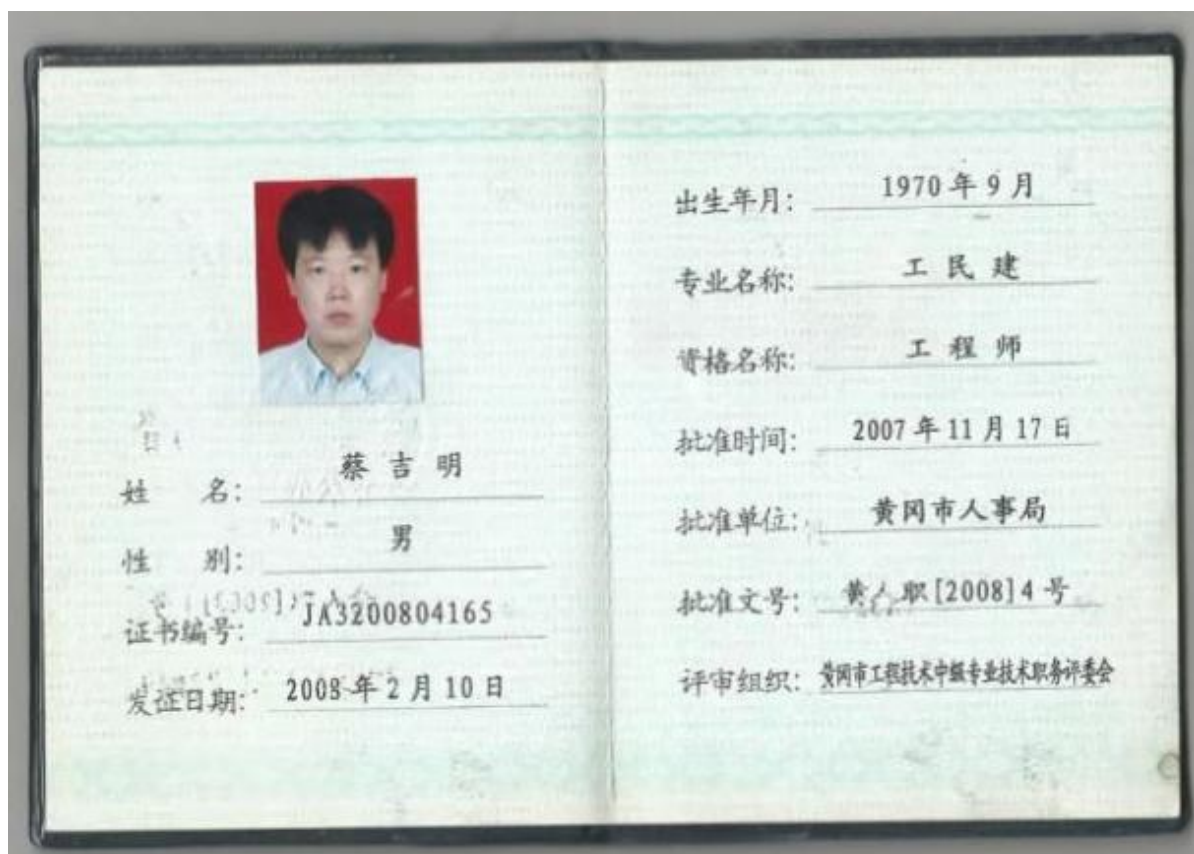 姓 名： 蔡吉明
性 别： 男
证书编号： JA3200804165
发证日期： 2008年2月10日
出生年月： 1970年9月
专业名称： 工民建
资格名称： 工程师
批准时间： 2007年11月17日
批准单位： 黄冈市人事局
批准文号： 黄人职[2008]4号
评审组织： 黄冈市工程技术中级专业技术职务评委会